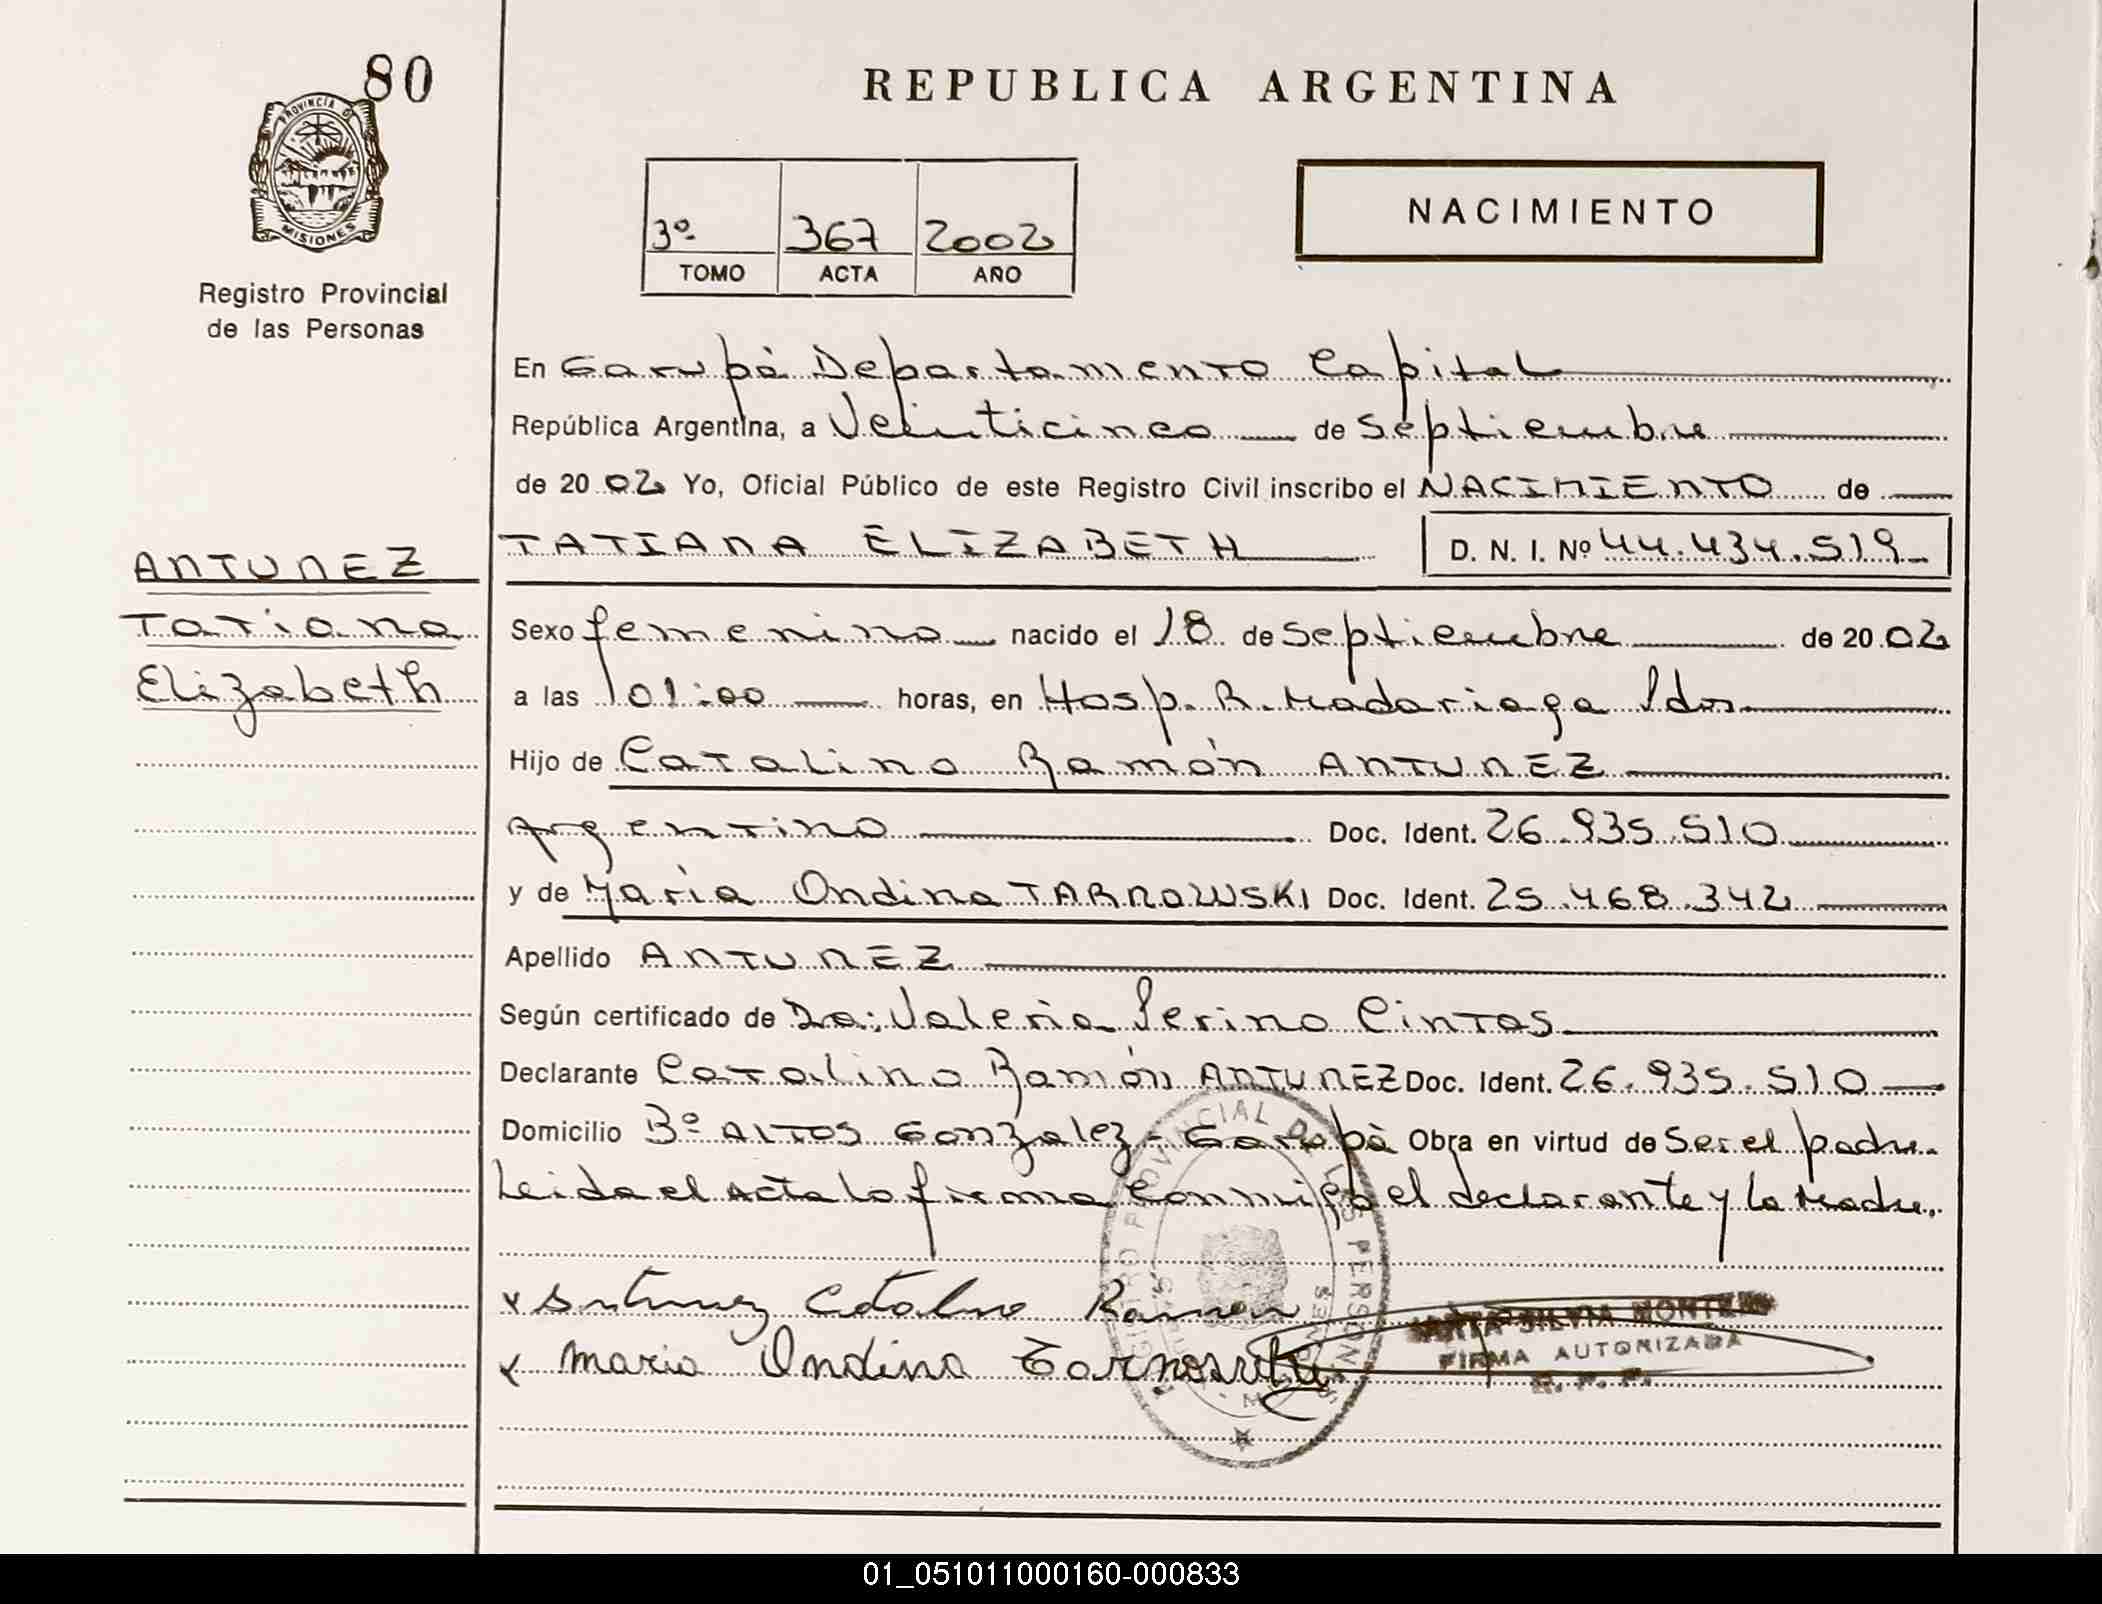 80
REPUBLICA ARGENTINA
PROVINCIA DE
MISIONES
Registro Provincial
de las Personas
3º 367 2002
TOMO ACTA AÑO
NACIMIENTO
En Garupá Departamento Capital
República Argentina, a Veinticinco de Septiembre
de 2002 Yo, Oficial Público de este Registro Civil inscribo el NACIMIENTO de
TATIANA ELIZABETH D. N. I. Nº 44.434.519
ANTUNEZ
Tatiana
Elizabeth
Sexo femenino nacido el 18 de Septiembre de 2002
a las 01:00 horas, en Hosp. R. Madariaga Pdas
Hijo de Catalino Ramón ANTUNEZ
Argentino Doc. Ident. 26.935.510
y de María Ondina TARNOWSKI Doc. Ident. 25.468.342
Apellido ANTUNEZ
Según certificado de Dra: Valeria Perino Cintas
Declarante Catalino Ramón ANTUNEZ Doc. Ident. 26.935.510
Domicilio Bº ALTOS Gonzalez - Garupá Obra en virtud de Ser el padre.
Leida el Acta la firma conmigo el declarante y la Madre.
x Antunez Catalino Ramon
x Maria Ondina Tarnowski
REGISTRO PROVINCIAL DE LAS PERSONAS
MISIONES
SILVIA
FIRMA AUTORIZADA
R. P. P.
01_051011000160-000833